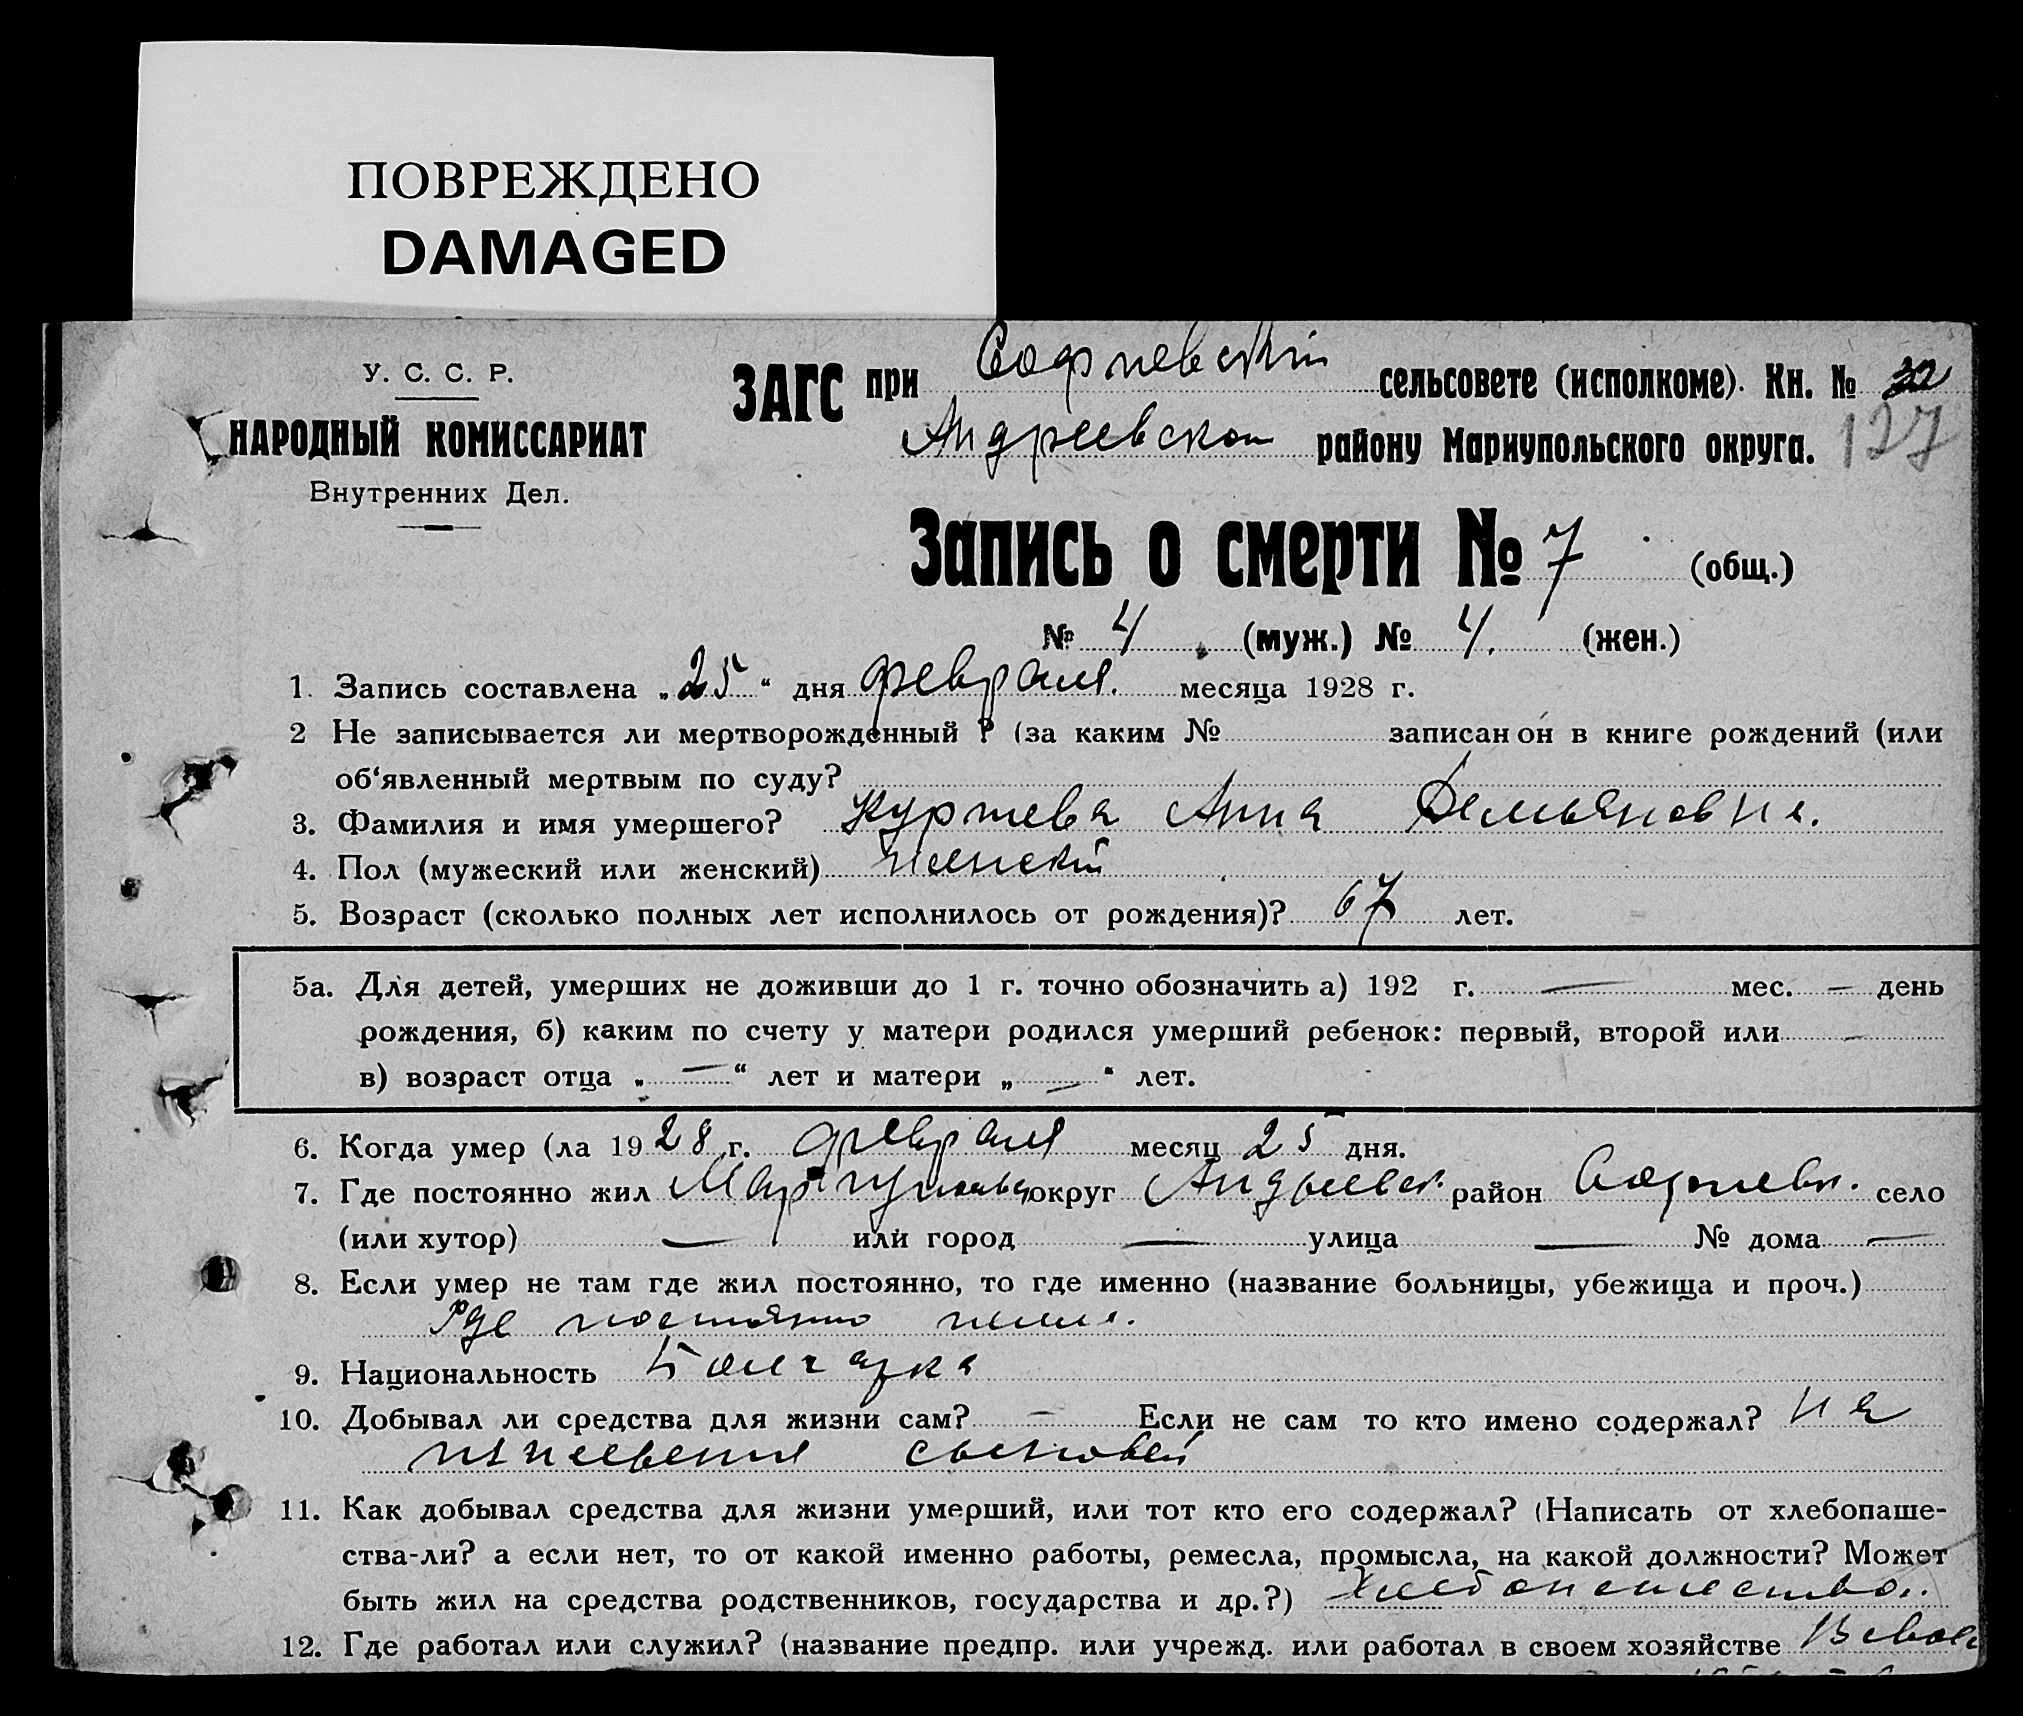 ПОВРЕЖДЕНО
DAMAGED
У. С. С. Р.
НАРОДНЫЙ КОМИССАРИАТ
Внутренних Дел.
ЗАГС при Софиевский сельсовете (исполкоме). Кн. №
Андреевском району Мариупольского округа. 127
Запись о смерти № 7 (общ.)
№ 4 (муж.) № 4. (жен.)
1. Запись составлена „25" дня февраля. месяца 1928 г.
2 Не записывается ли мертворожденный ? (за каким № записан он в книге рождений (или
об'явленный мертвым по суду?
3. Фамилия и имя умершего? Куртева Анна Демьяновна.
4. Пол (мужеский или женский) женский
5. Возраст (сколько полных лет исполнилось от рождения)? 67 лет.
5а. Для детей, умерших не доживши до 1 г. точно обозначить а) 192 г. — мес. — день
рождения, б) каким по счету у матери родился умерший ребенок: первый, второй или —
в) возраст отца „ — " лет и матери „ — " лет.
6. Когда умер (ла 1928 г. февраля месяц 25 дня.
7. Где постоянно жил Мариупольск округ Андреевск. район Софиевк. село
(или хутор) — или город — улица — № дома —
8. Если умер не там где жил постоянно, то где именно (название больницы, убежища и проч.)
Где постоянно жила.
9. Национальность Болгарка
10. Добывал ли средства для жизни сам? — Если не сам то кто имено содержал? на
иждевения сыновей
11. Как добывал средства для жизни умерший, или тот кто его содержал? (Написать от хлебопаше-
ства-ли? а если нет, то от какой именно работы, ремесла, промысла, на какой должности? Может
быть жил на средства родственников, государства и др.?) Хлебопашество.
12. Где работал или служил? (название предпр. или учрежд. или работал в своем хозяйстве В своем